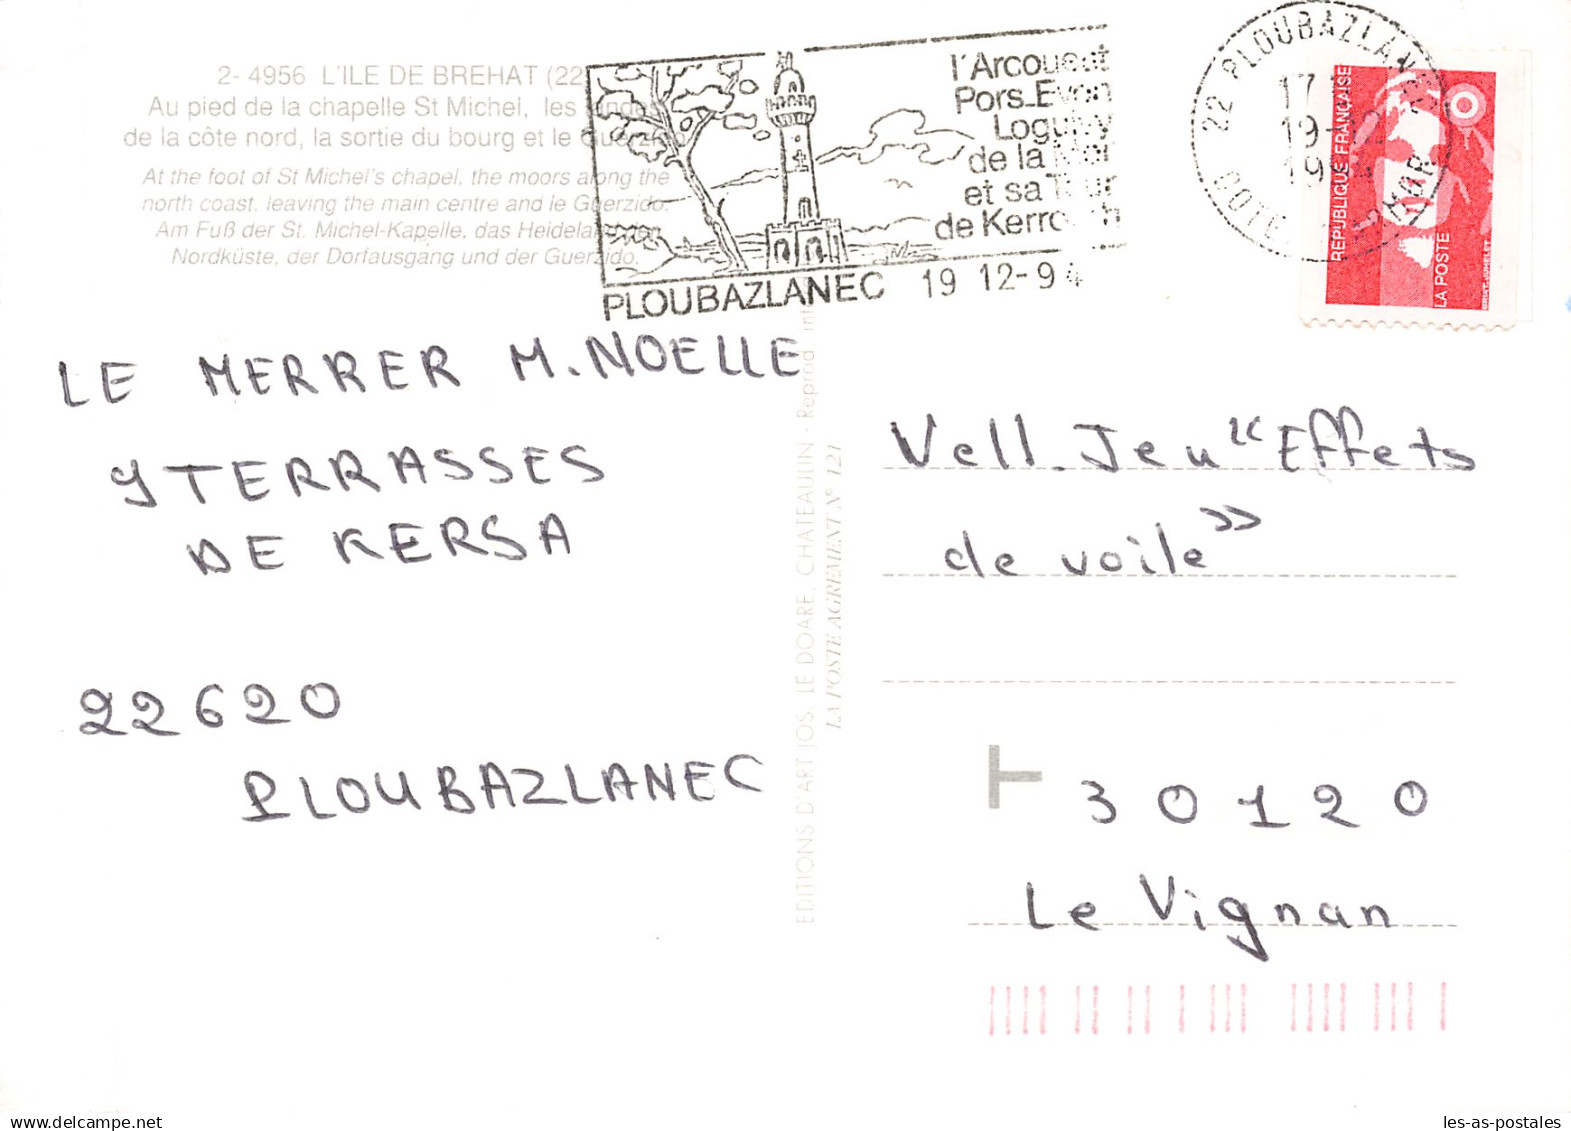 2- 4956 L'ILE DE BREHAT (22)
Au pied de la chapelle St Michel, les landes
de la côte nord, la sortie du bourg et le Guerzido.
At the foot of St Michel's chapel, the moors along the
north coast, leaving the main centre and le Guerzido.
Am Fuß der St. Michel-Kapelle, das
Nordküste, der Dorfausgang und der Guerzido.
l'Arcouest
Pors-Even
Loguivy
de la Mer
et sa Tour
de Kerroc'h
PLOUBAZLANEC 19 12-94
22 PLOUBAZLANEC
17
19-12
1994
REPUBLIQUE FRANÇAISE
LA POSTE
LE MERRER M. NOELLE
9 TERRASSES
DE KERSA
22620
PLOUBAZLANEC
EDITIONS D'ART JOS, LE DOARE, CHATEAULIN - Reprod. int
LA POSTE AGREMENT N° 121
Vell. Jeu "Effets
de voile"
30120
Le Vignan
les-as-postales